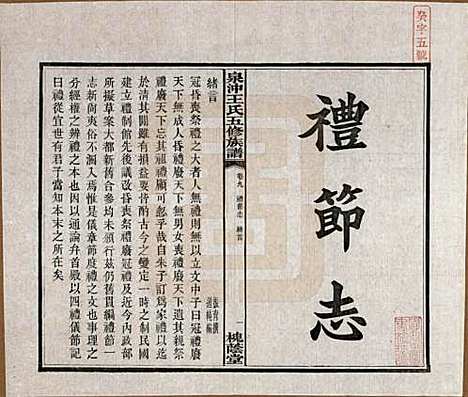 癸字五號
禮節志
泉沖王氏五修族譜
卷九 禮節志 緒言
一
槐蔭堂
緒言
冠昏喪祭禮之大者人無禮則無以立文中子曰冠禮廢
天下無成人昏禮廢天下無男女喪禮廢天下遺其親祭
禮廢天下忘其祖禮顧可忽乎哉自朱子定家禮
於淸其閒雖有損益要皆酌古今之變定一時之制民國
建立禮制館先後訂有冠昏喪祭禮廢冠禮今內政部
所擬草案大都新舊合參均未頒行茲仍舊貫編禮節一
志新尙爽俗不漏入焉惟是儀章節度禮之文也事理之
分經權之辨禮之本也因以通論弁首殿以四禮儀節記
曰禮從宜世有君子當知本末之所在矣